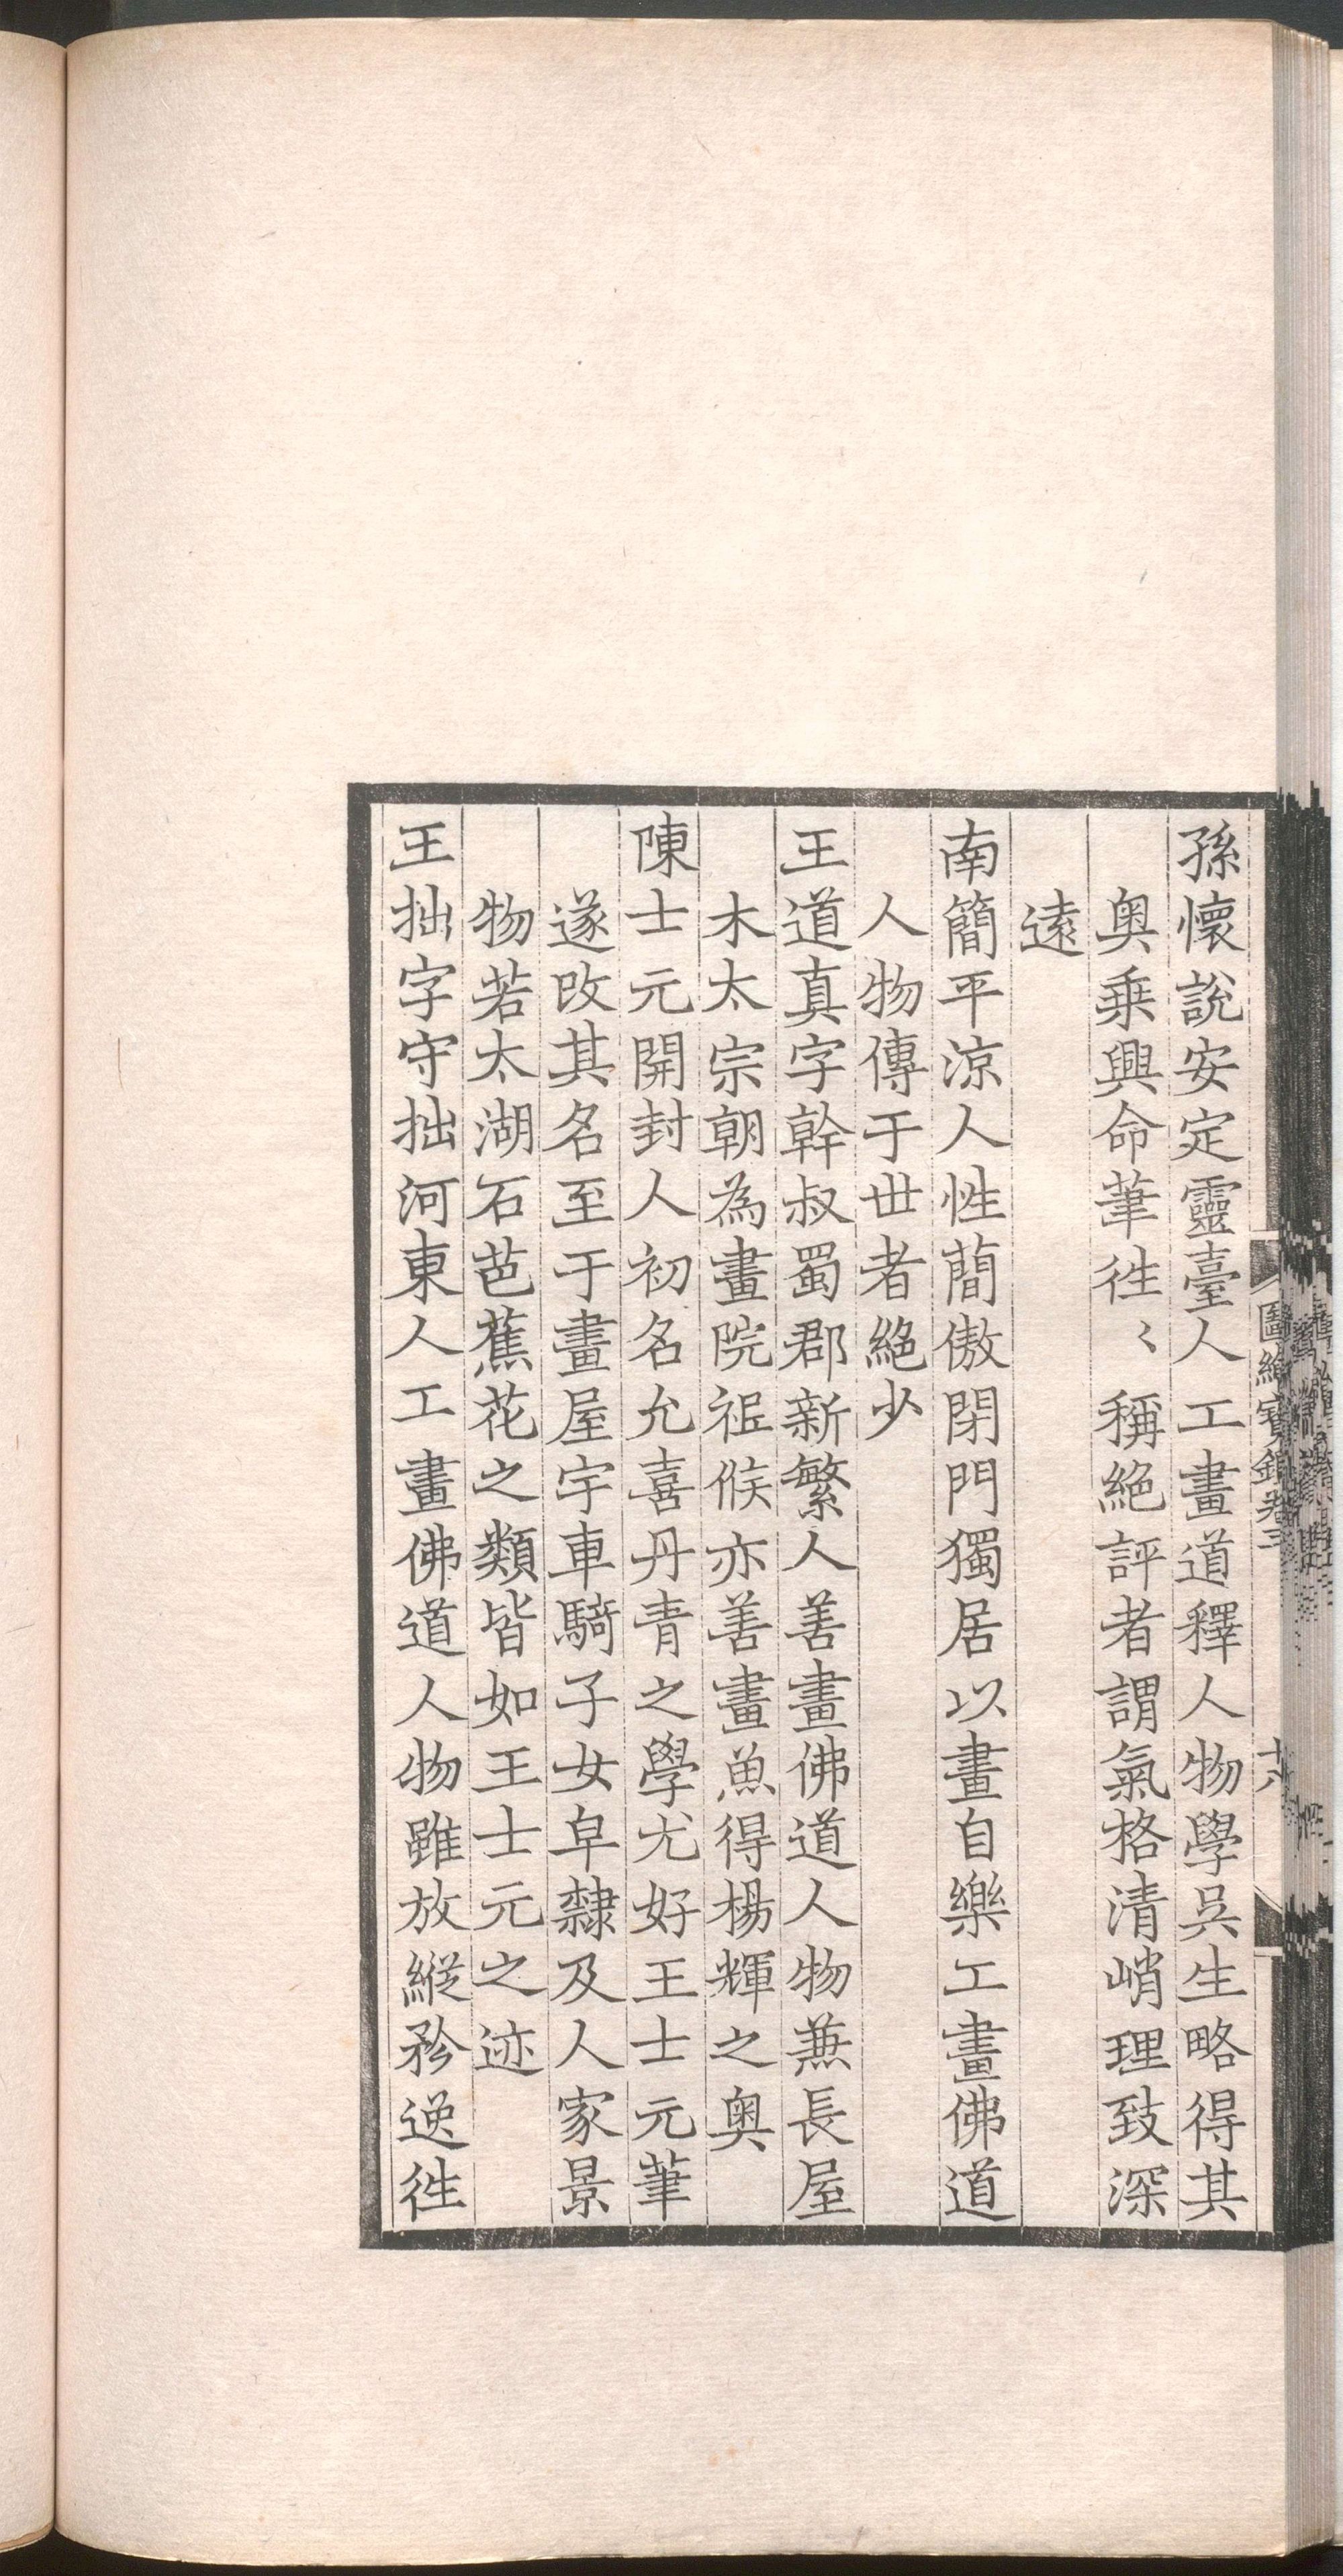 孫懷說安定靈臺人工畫道釋人物學吳生略得其
奧乗興命筆徃〻稱絕評者謂氣格清峭理致深
遠
南簡平涼人性蕳傲閉門獨居以畫自樂工畫佛道
人物傳于丗者絕少
王道真字幹叔蜀郡新繁人善畫佛道人物兼長屋
木太宗朝為畫院祗候亦善畫魚得楊輝之奧
陳士元開封人初名允喜丹青之學尤好王士元筆
遂改其名至于畫屋宇車騎子女皁隸及人家景
物若太湖石芭蕉花之類皆如王士元之迹
王拙字守拙河東人工畫佛道人物雖放縱矜逸徃
圖繪寶鑑卷三
十六